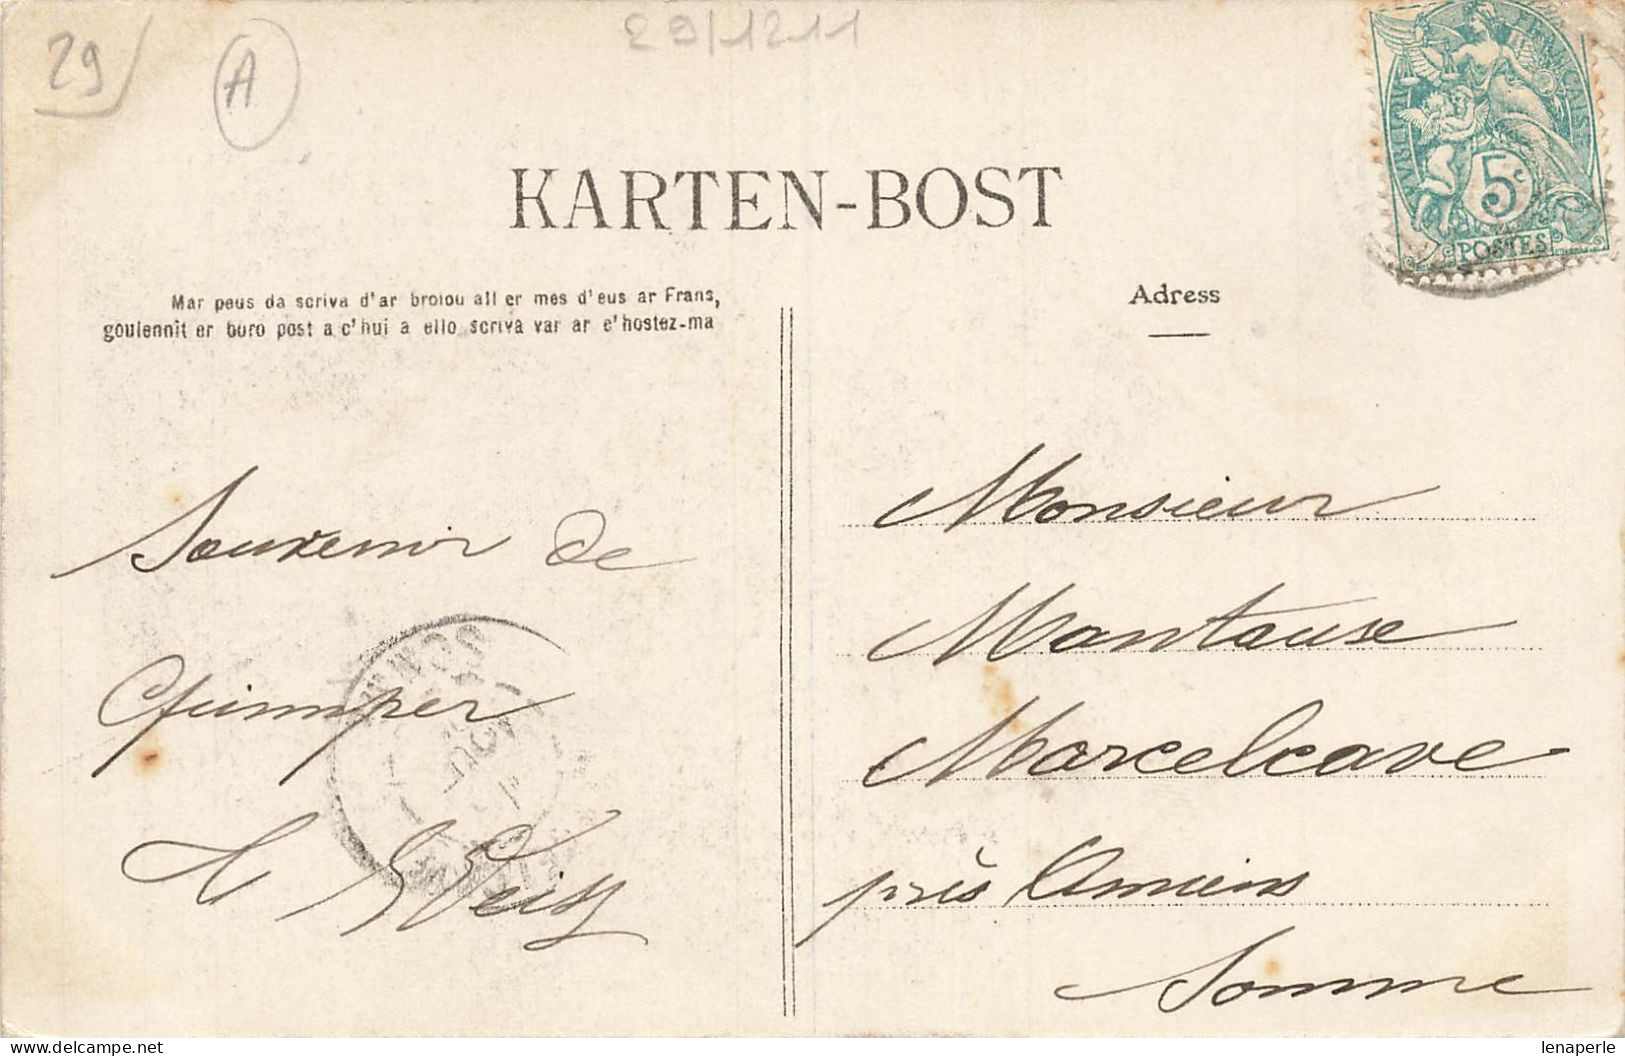 29
A
29/1211
KARTEN-BOST
Mar peus da scriva d'ar broiou all er mes d'eus ar Frans,
goulennit er buro post a c'hui a ello scriva var ar c'hostez-ma
Adress
5c
POSTES
Souvenir de
Quimper
Monsieur
Mantause
Marcelcave
près Amiens
Somme
lenaperle
delcampe.net